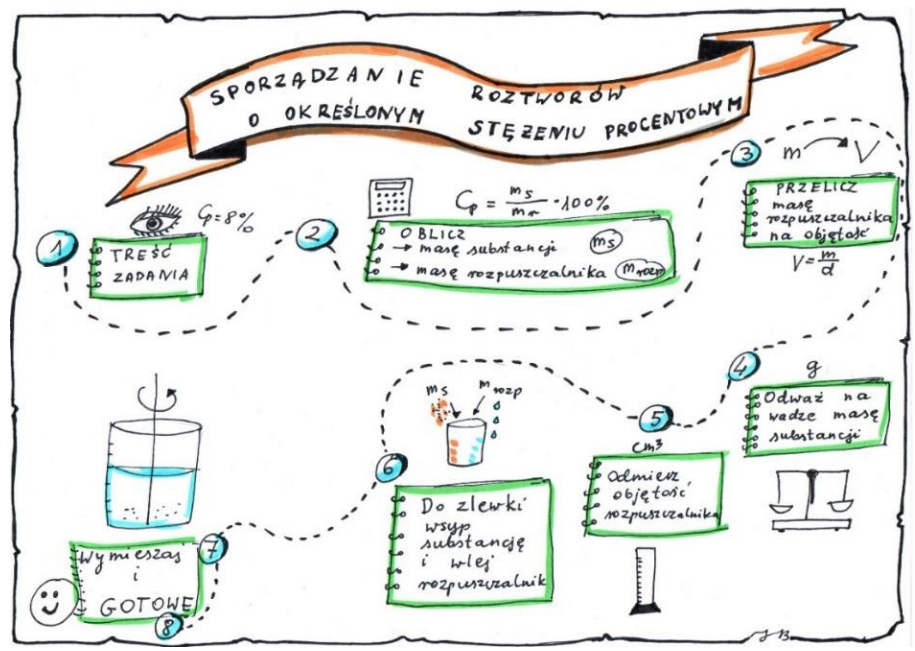 SPORZĄDZANIE ROZTWORÓW
O OKREŚLONYM STĘŻENIU PROCENTOWYM
1
Cp=8%
TREŚĆ
ZADANIA
2
Cp = ms/mr · 100%
OBLICZ
→ masę substancji ms
→ masę rozpuszczalnika mrozp
3
m → V
PRZELICZ
masę
rozpuszczalnika
na objętość
V = m/d
4
g
Odważ na
wadze masę
substancji
5
cm³
Odmierz
objętość
rozpuszczalnika
6
ms mrozp
Do zlewki
wsyp
substancję
i wlej
rozpuszczalnik
7
Wymieszaj
i
GOTOWE
8